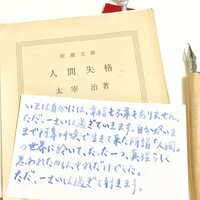 新潮文庫
人間失格
太宰治著
いまは自分には、幸福も不幸もありません。
ただ、一さいは過ぎて行きます。自分がいま
まで阿鼻叫喚で生きて来た所謂「人間」の
世界に於いて、たった一つ、真理らしく
思われたのは、それだけでした。
ただ、一さいは過ぎて行きます。